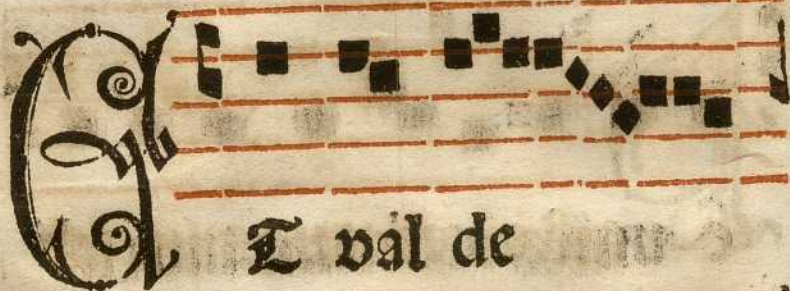 ET val de